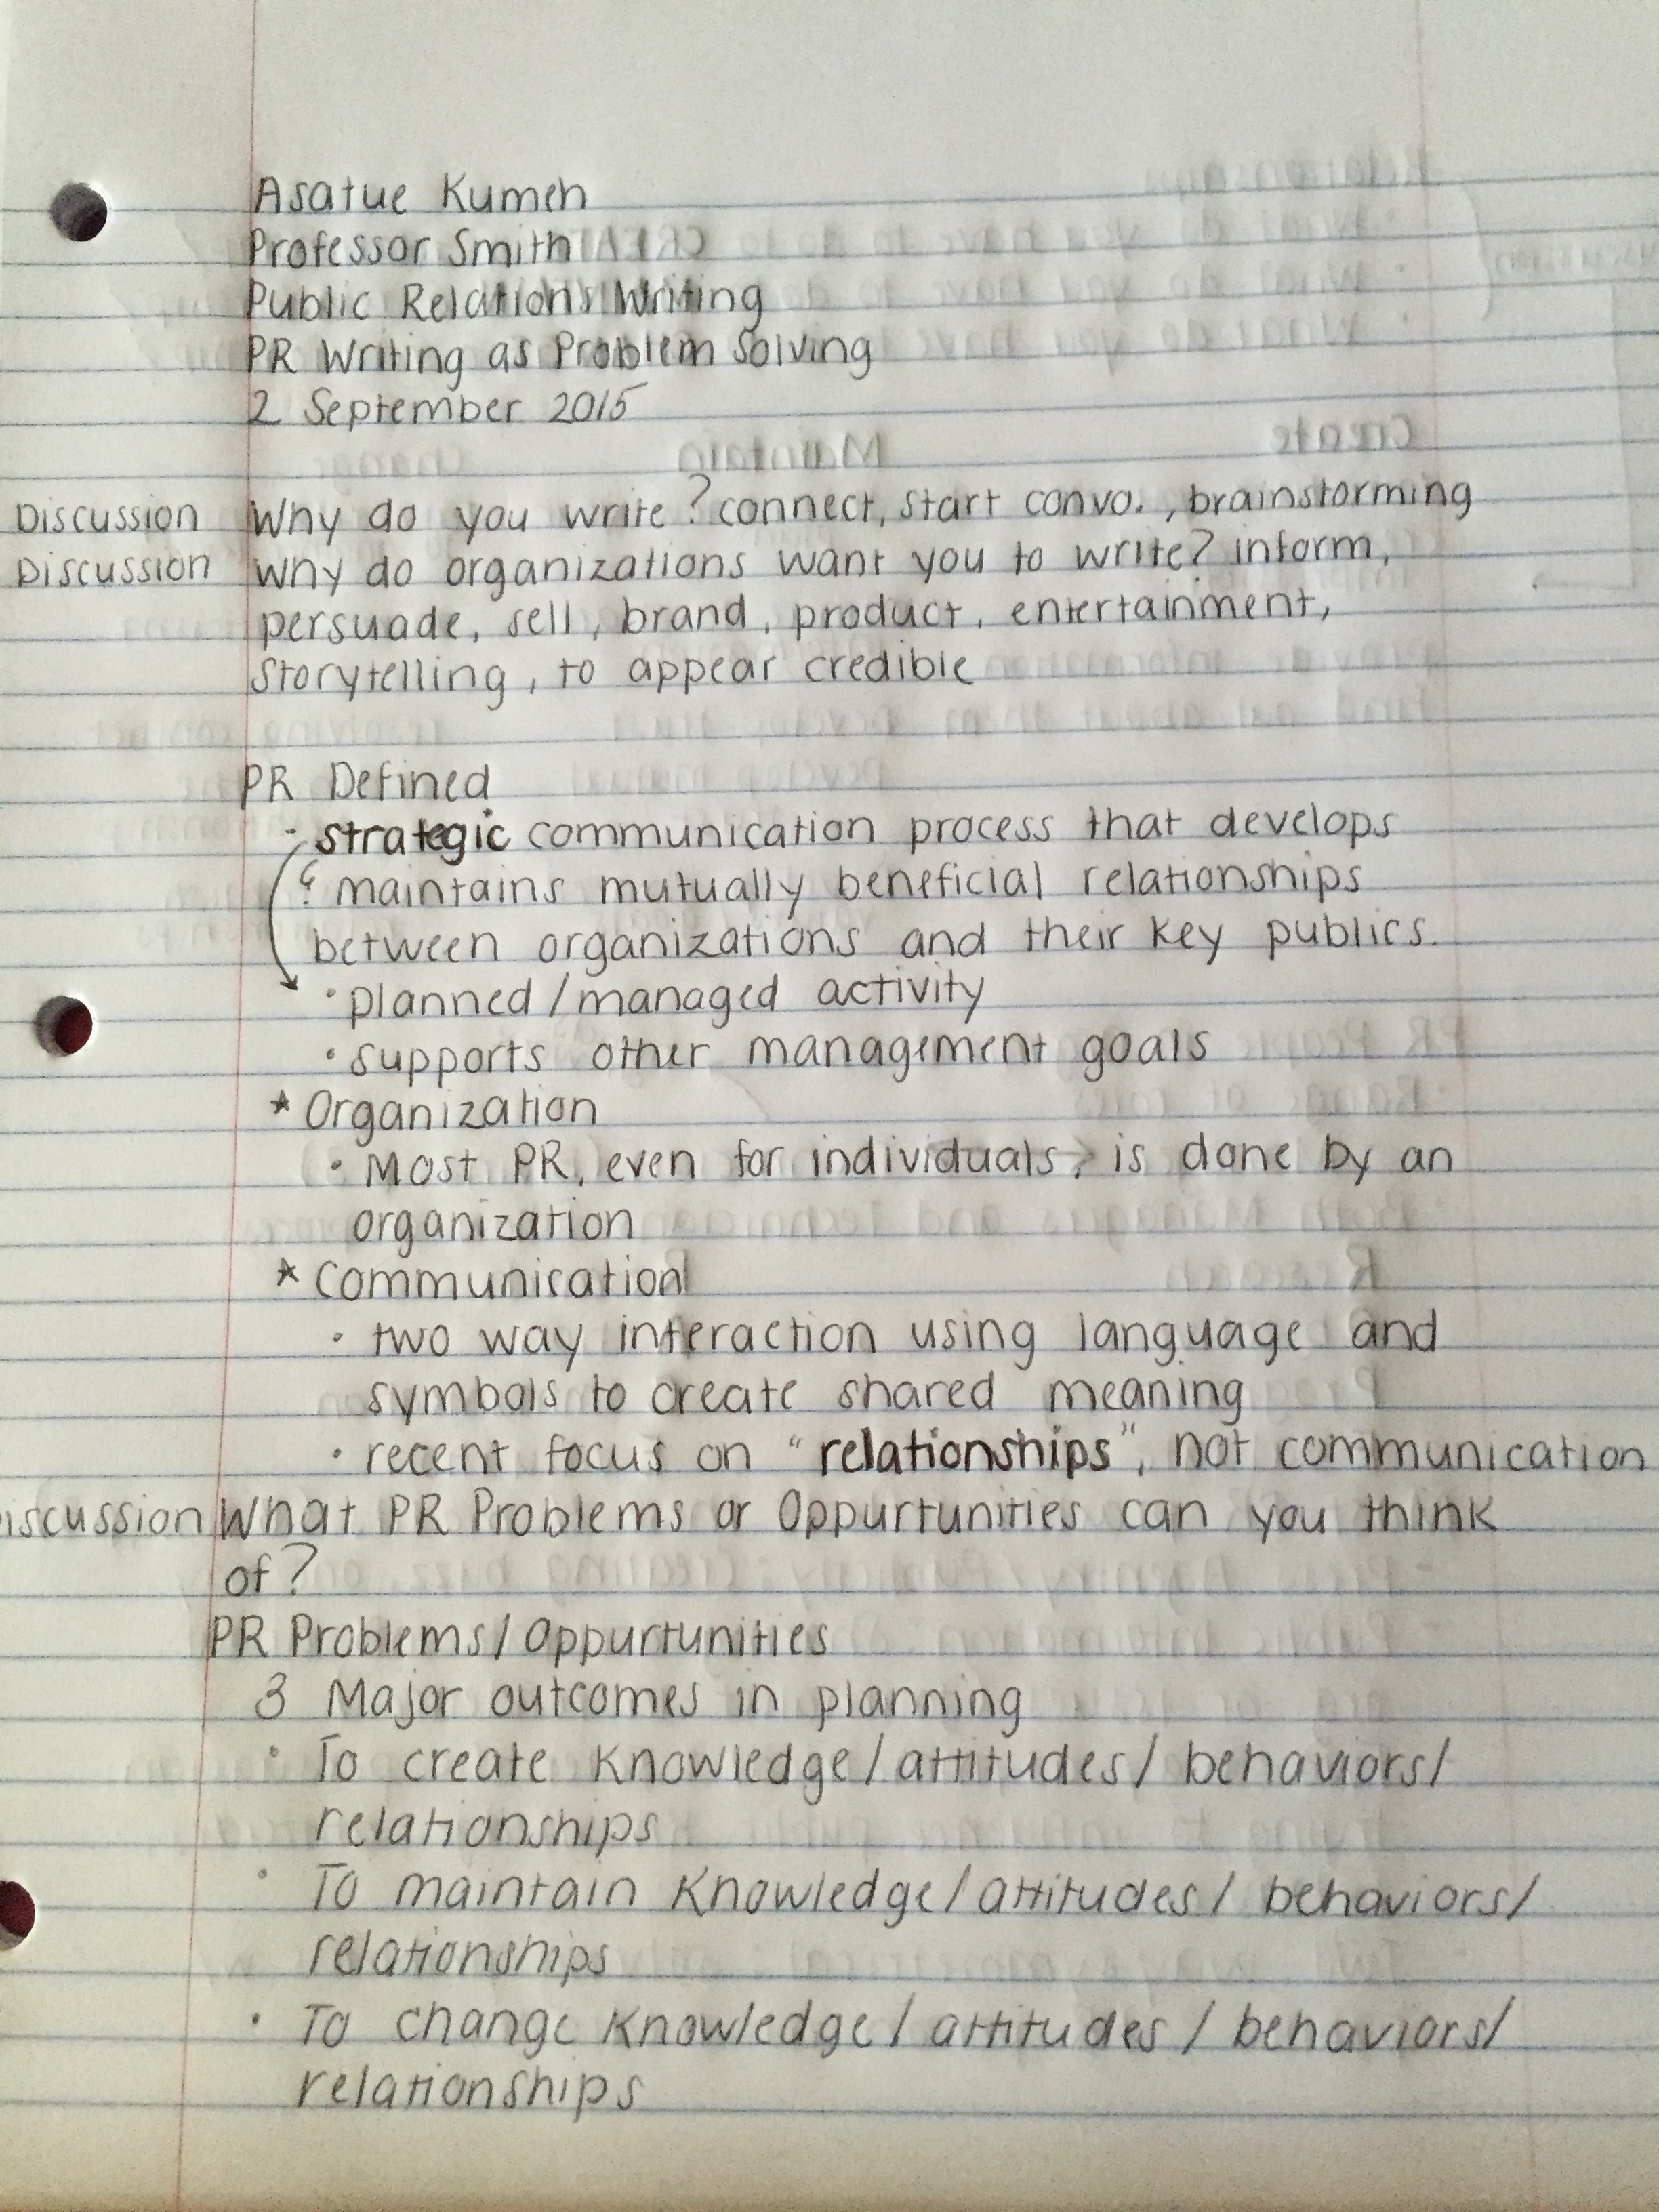 Asatue Kumeh
Professor Smith
Public Relations Writing
PR Writing as Problem Solving
2 September 2015
Discussion Why do you write? connect, start convo., brainstorming
Discussion Why do organizations want you to write? inform,
persuade, sell, brand, product, entertainment,
storytelling, to appear credible
PR Defined
- strategic communication process that develops
& maintains mutually beneficial relationships
between organizations and their key publics.
• planned/managed activity
• supports other management goals
* Organization
• Most PR, even for individuals, is done by an
organization
* Communication
• two way interaction using language and
symbols to create shared meaning
• recent focus on "relationships", not communication
iscussion What PR Problems or Oppurtunities can you think
of?
PR Problems/Oppurtunities
3 Major outcomes in planning
• To create Knowledge/attitudes/behaviors/
relationships
• To maintain Knowledge/attitudes/behaviors/
relationships
• To change Knowledge/attitudes/behaviors/
relationships